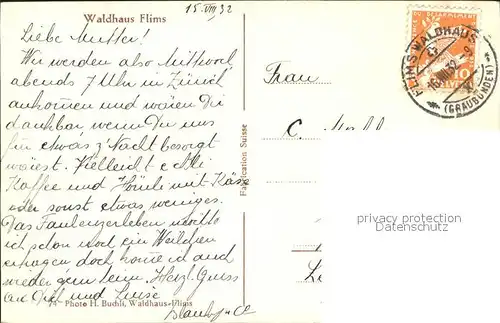 Waldhaus Flims
15. VIII 32
Liebe Mutter!
Wir werden also Mittwoch
abends 7 Uhr in Zürich
ankommen und wären Dir
dankbar, wenn Du uns
für etwas z'Nacht besorgt
wärest. Vielleicht
Kaffee und Hörnli mit Käse
oder sonst etwas weniges.
Das Faulenzerleben möchte
ich schon noch ein Weilchen
ertragen doch komme ich auch
wieder gern heim. Herzl. Gruss
an Dich und Luise
74 Photo H. Buchli, Waldhaus-Flims
Fabrication Suisse
Frau
C.
FLIMS-WALDHAUS
16.VIII.32
(GRAUBÜNDEN)
10
HELVETIA
privacy protection
Datenschutz